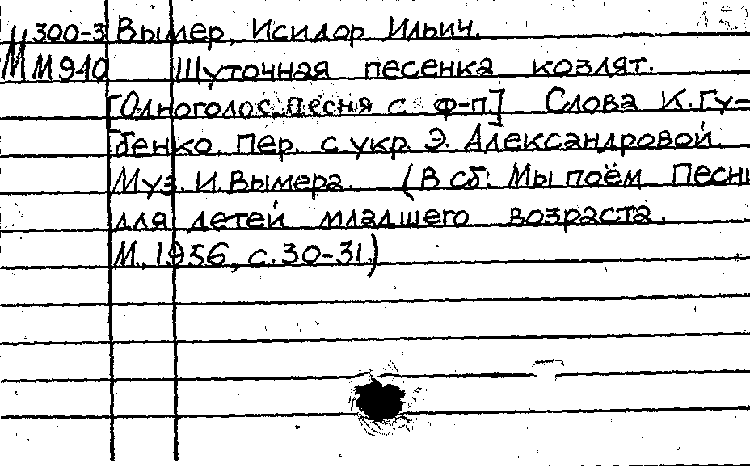 М 300-3 Вымер, Исидор Ильич.
М М940 Шуточная песенка козлят.
[Одноголос. песня с ф-п.] Слова К. Гу=
бенко. Пер. с укр. Э. Александровой.
Муз. И. Вымера. (В сб: Мы поём Песни
для детей младшего возраста.
М., 1956, с. 30-31.)